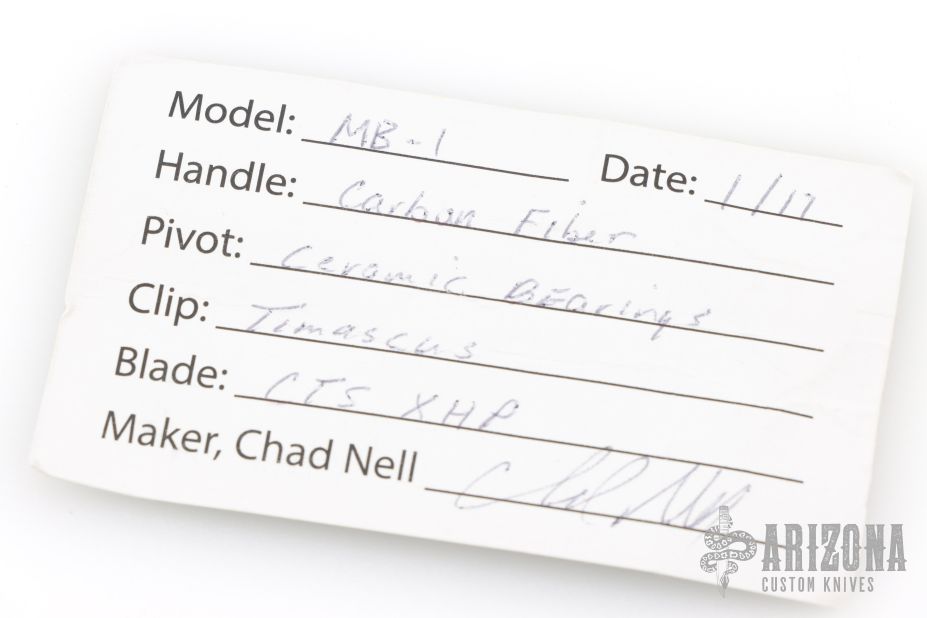 Model: MB-1 Date: 1/17
Handle: Carbon Fiber
Pivot: Ceramic BEarings
Clip: Timascus
Blade: CTS XHP
Maker, Chad Nell Chad Nell
ARIZONA
CUSTOM KNIVES